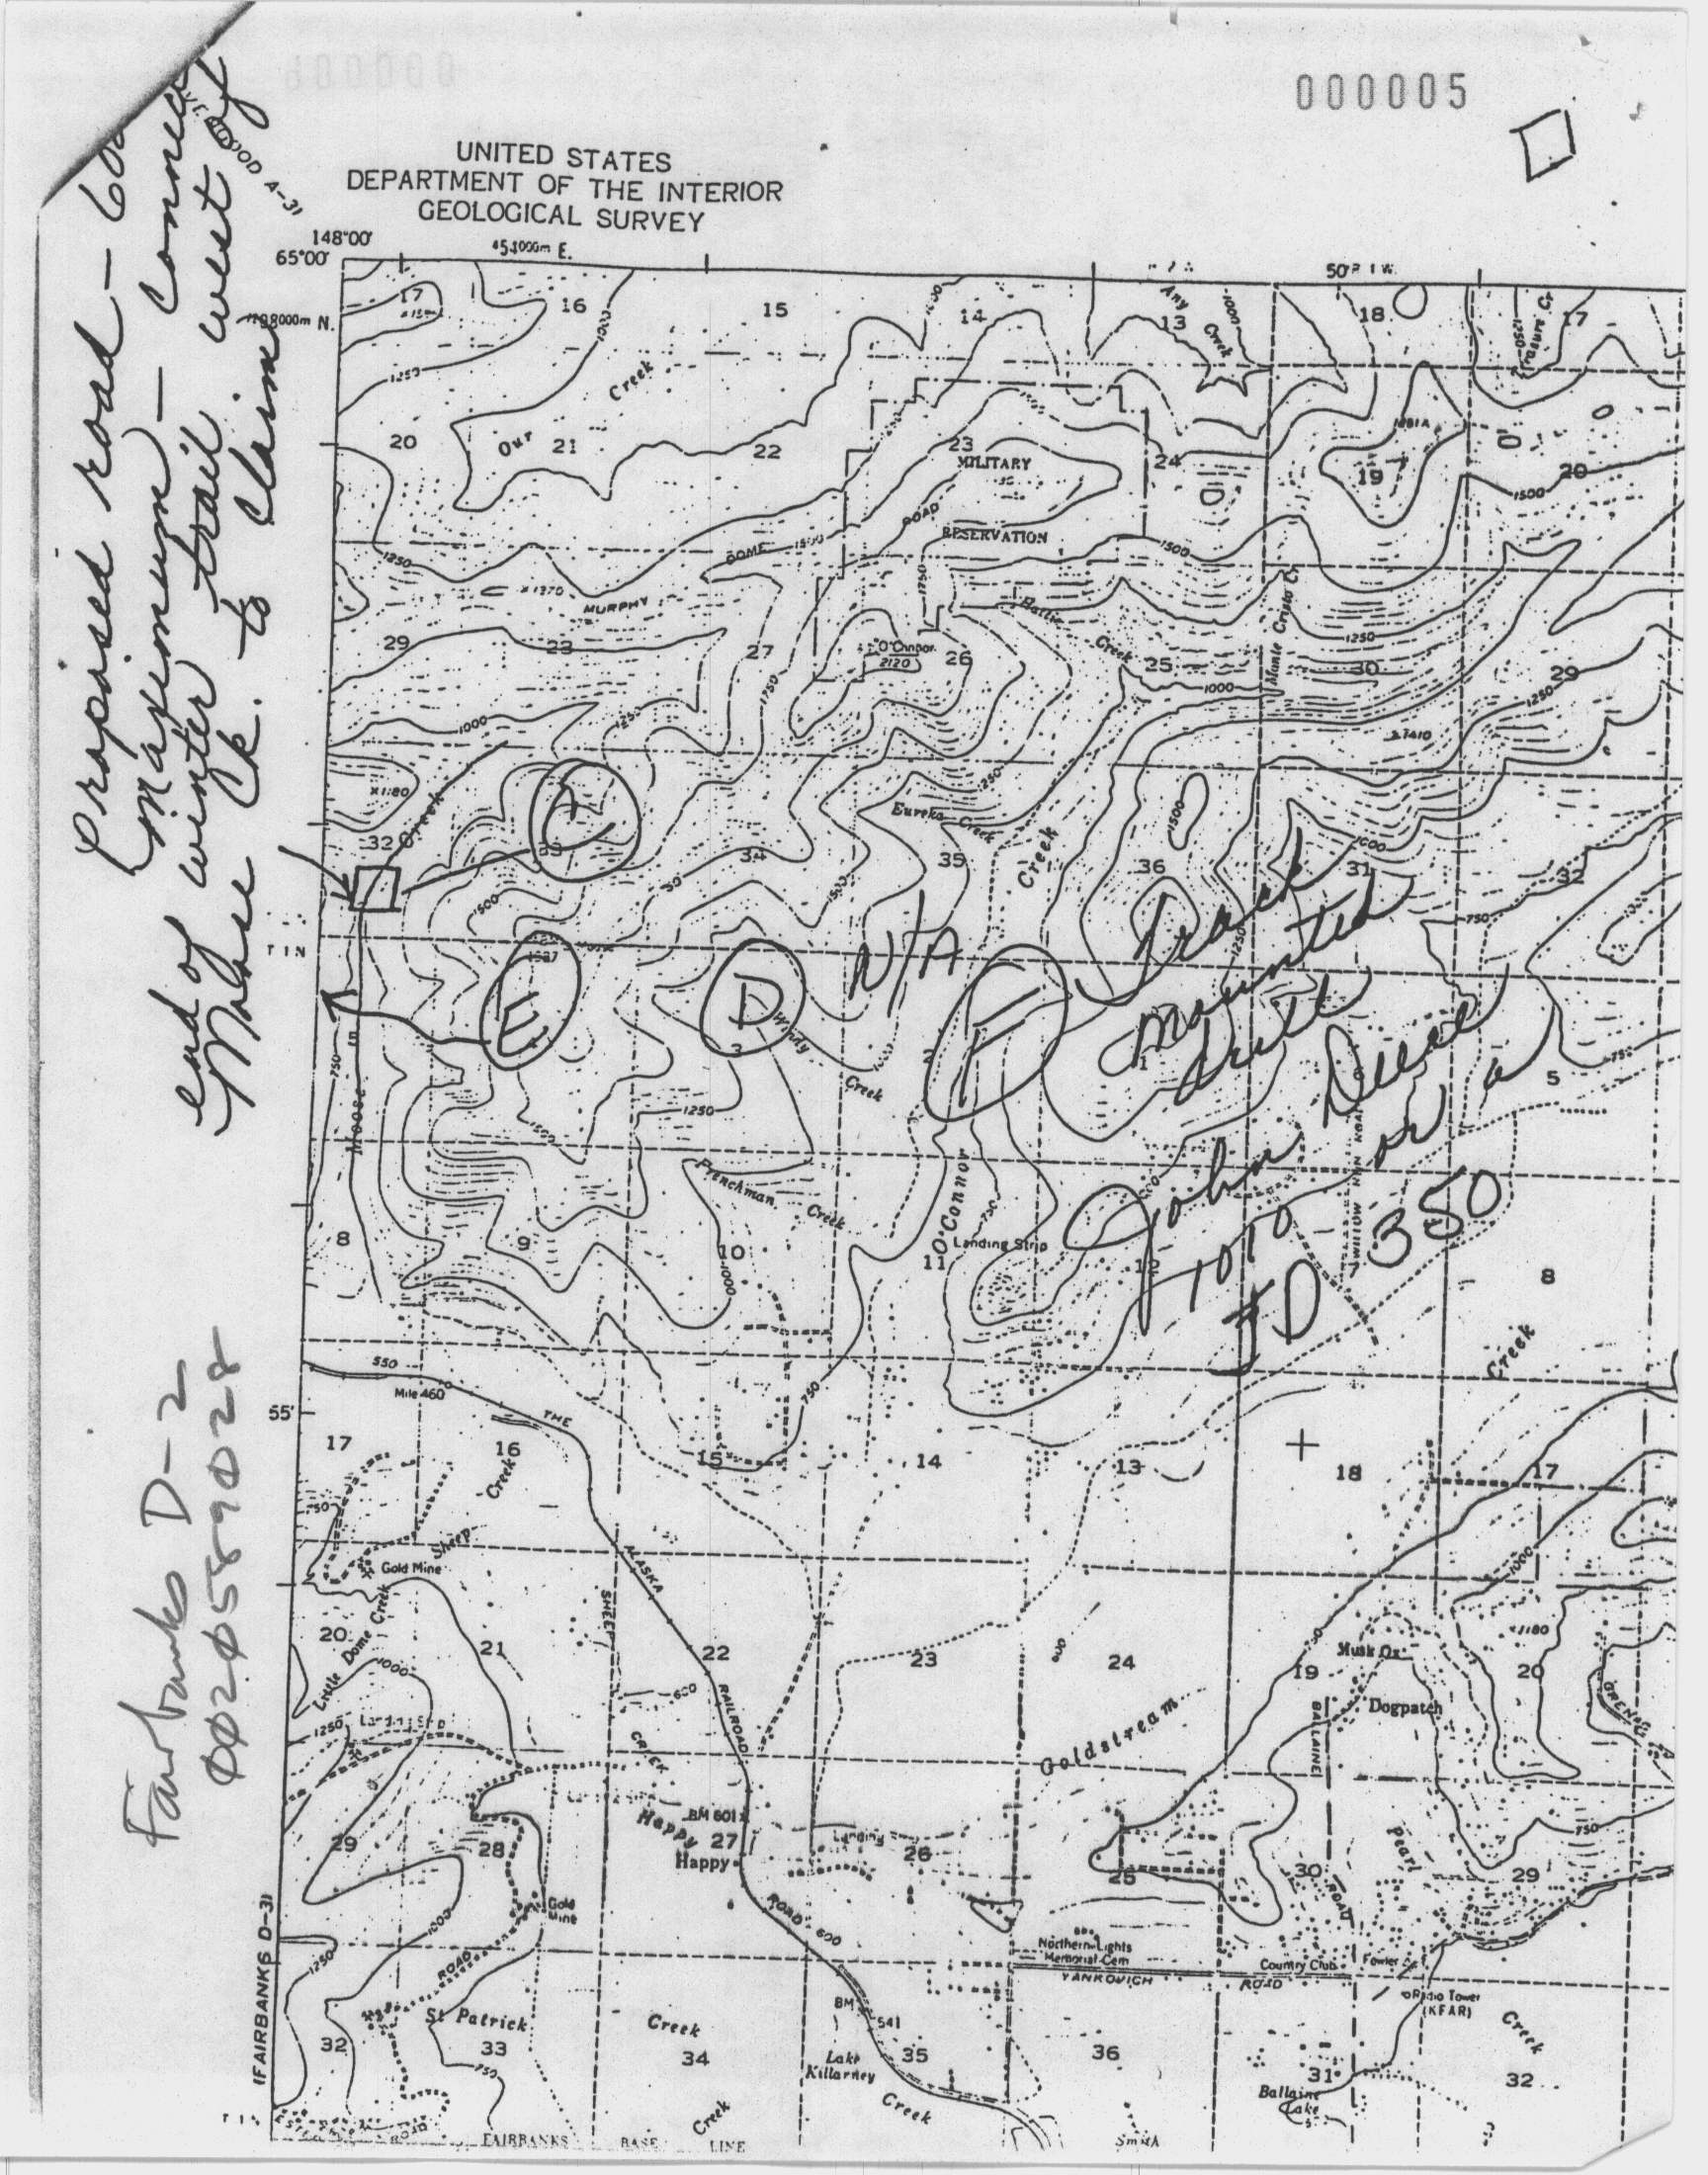 000005
UNITED STATES
DEPARTMENT OF THE INTERIOR
GEOLOGICAL SURVEY
148°00'
65°00'
Proposed road —
Maximum — Connect
end of winter trail west of
Moose Ck. to Claims
Fairbanks D-2
ØØ2Ø589028
17 16 15 14 13 18 17
Any
Creek
Treasure Cr
1250
Our Creek
20 21 22 23 24 19 20
MILITARY
RESERVATION
MURPHY DOME ROAD
1250
1500
x1370
1750
Hattie Creek
Monte Cristo Cr
29 27 26 25 30 29
O'Connor
2120
1000
1250
x1410
x1180
Creek
Eureka Creek
Creek
32 33 34 35 36 31 32
C
N/A
T 1 N
E
D
F
Track
mounted
drill
John Deere
1010 or a
JD 350
Windy Creek
5 3 2 1 5
750
Moose
1250
Frenchman Creek
O'Connor
Landing Strip
8 9 10 11 12 8
Creek
550
Mile 460
55'
THE ALASKA RAILROAD
17 16 15 14 13 18 17
Sheep Creek
Gold Mine
Little Dome Creek
20 21 22 23 24 19 20
SHEEP CREEK ROAD
600
1000
1250
Musk Ox
Dogpatch
x1180
Goldstream
BALLAINE ROAD
BM 601
Happy
Happy
Landing
29 28 27 26 25 30 29
Pearl
Creek
750
Gold
Mine
Northern Lights
Memorial Cem
YANKOVICH ROAD
Country Club
Fowler
Radio Tower
(KFAR)
ROAD
St Patrick
Creek
BM
541
Lake
Killarney
Creek
32 33 34 35 36 31 32
Ballaine
Lake
Creek
(FAIRBANKS D-3)
FAIRBANKS BASE LINE
Smith